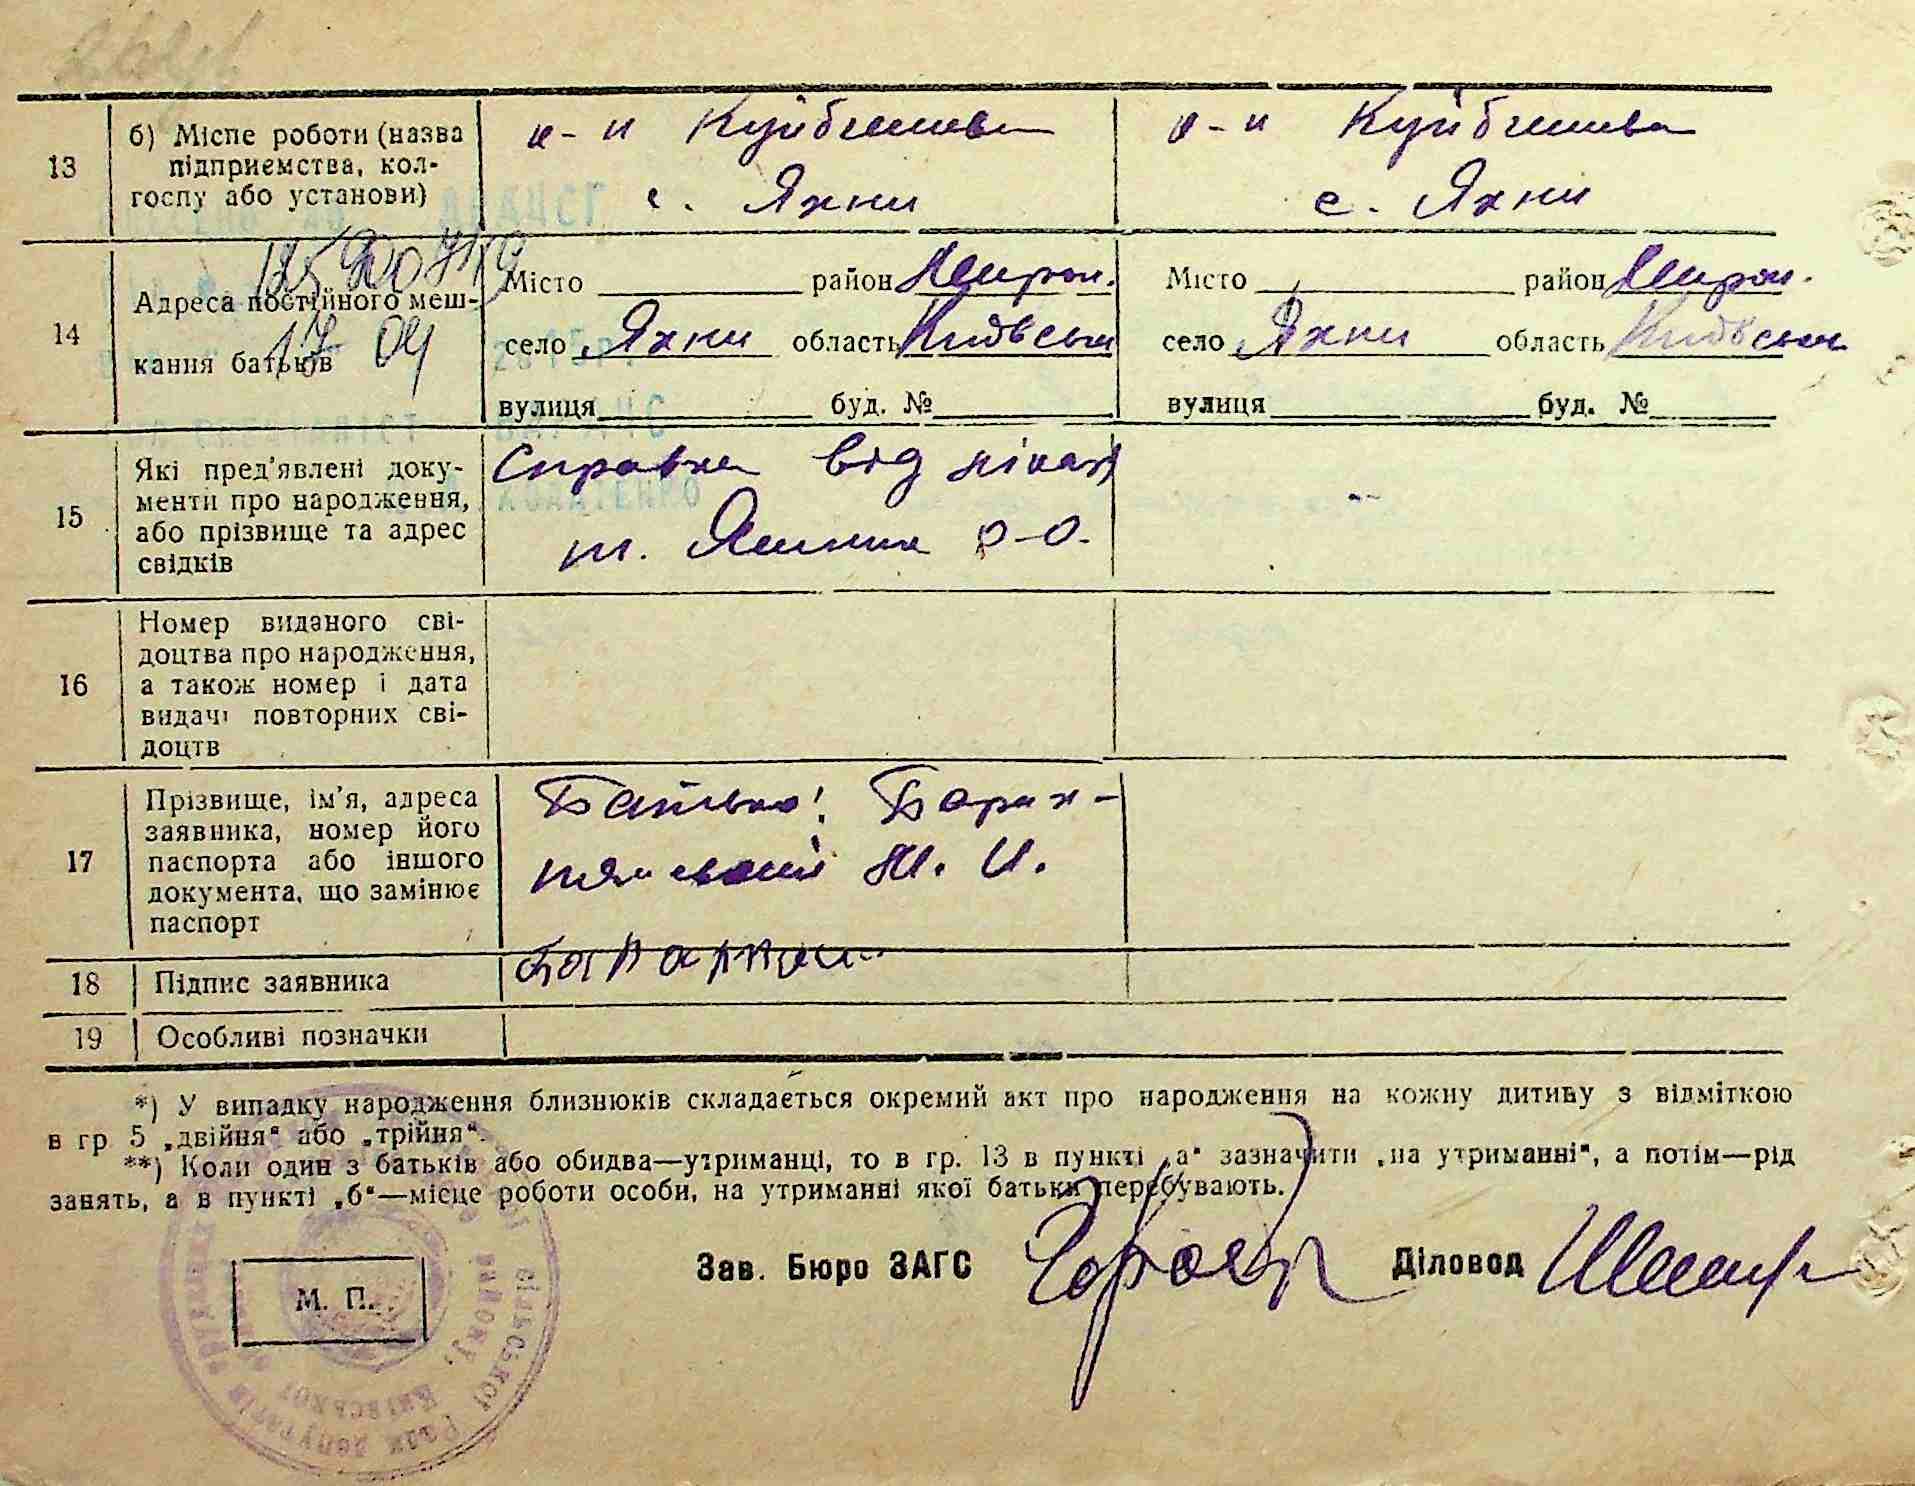 13
б) Місце роботи (назва
підприємства, кол-
госпу або установи)
к-п Куйбишева
с. Яхни
к-п Куйбишева
с. Яхни
14
Адреса постійного меш-
кання батьків
17 04
Місто район Мирон.
село Яхни область Київськ
вулиця буд. №
Місто район Мирон.
село Яхни область Київськ
вулиця буд. №
15
Які пред'явлені доку-
менти про народження,
або прізвище та адрес
свідків
Справка від лікаря
т.
16
Номер виданого сві-
доцтва про народження,
а також номер і дата
видачі повторних сві-
доцтв
17
Прізвище, ім'я, адреса
заявника, номер його
паспорта або іншого
документа, що замінює
паспорт
Батько:
М. И.
18
Підпис заявника
19
Особливі позначки
*) У випадку народження близнюків складається окремий акт про народження на кожну дитину з відміткою
в гр 5 „двійня“ або „трійня“.
**) Коли один з батьків або обидва—утриманці, то в гр. 13 в пункті „а“ зазначити „на утриманні“, а потім—рід
занять, а в пункті „б“—місце роботи особи, на утриманні якої батьки перебувають.
Зав. Бюро ЗАГС
Діловод
М. П.
сільської Ради депутатів
району, Київської